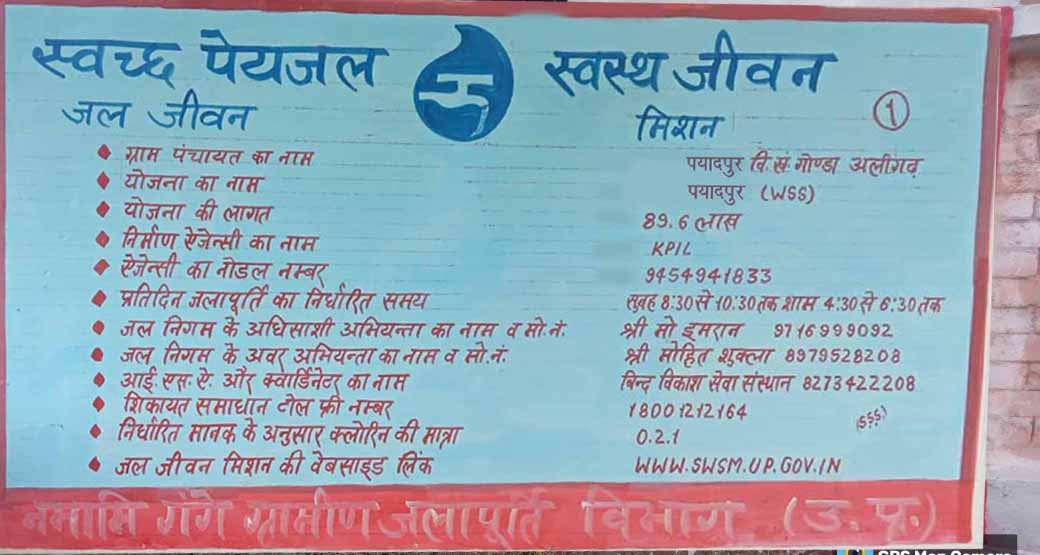 स्वच्छ पेयजल स्वस्थ जीवन
जल जीवन मिशन
1
ग्राम पंचायत का नाम पयादपुर वि.खं. गोण्डा अलीगढ़
योजना का नाम पयादपुर (WSS)
योजना की लागत 89.6 लाख
निर्माण ऐजेन्सी का नाम KPIL
ऐजेन्सी का नोडल नम्बर 9454941833
प्रतिदिन जलापूर्ति का निर्धारित समय सुबह 8:30 से 10:30 तक शाम 4:30 से 6:30 तक
जल निगम के अधिसाशी अभियन्ता का नाम व मो.नं. श्री मो इमरान 9716999092
जल निगम के अवर अभियन्ता का नाम व मो.नं. श्री मोहित शुक्ला 8979528208
आई.एस.ऐ. और क्वार्डिनेटर का नाम बिन्द विकाश सेवा संस्थान 8273422208
शिकायत समाधान टोल फ्री नम्बर 18001212164
निर्धारित मानक के अनुसार क्लोरिन की मात्रा 0.2.1
जल जीवन मिशन की वेबसाइड लिंक WWW.SWSM.UP.GOV.IN
नमामि गंगे ग्रामीण जलापूर्ति विभाग (उ.प्र.)